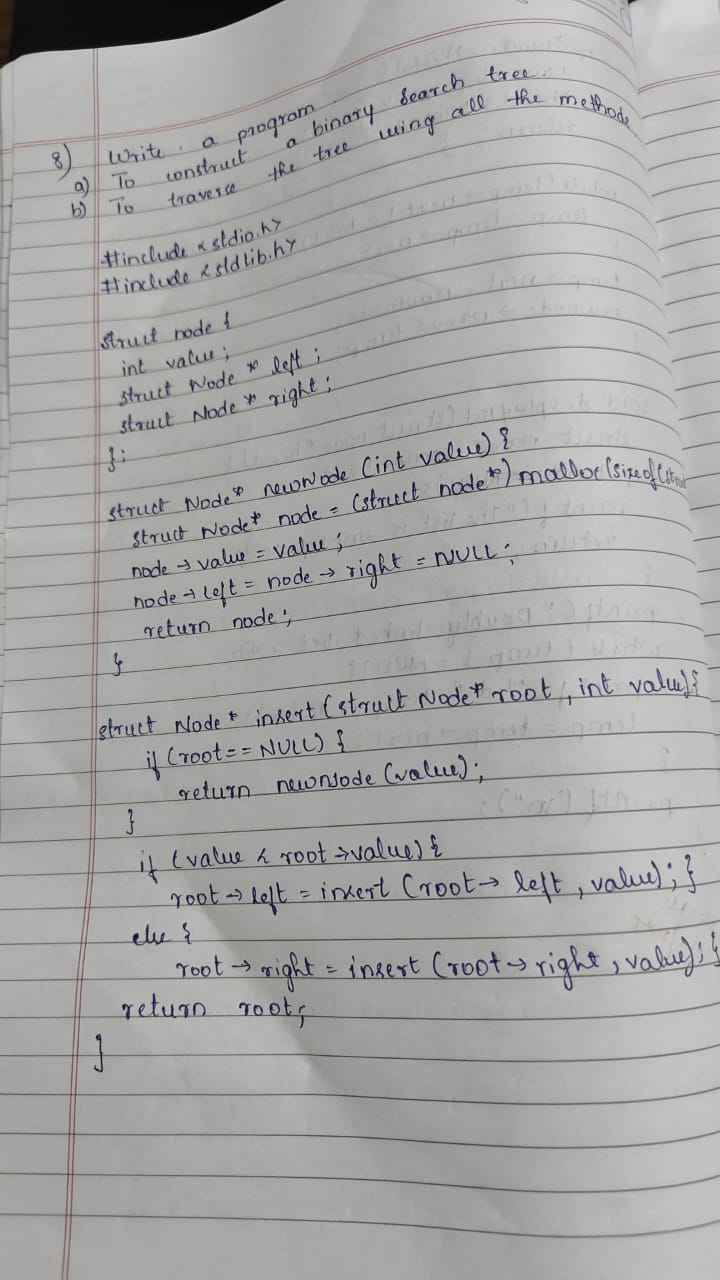 8) Write a program
a) To construct a binary search tree.
b) To traverse the tree using all the methods
#include <stdio.h>
#include <stdlib.h>
struct node {
int value;
struct Node * left;
struct Node * right;
};
struct Node* newNode (int value) {
struct Node* node = (struct node*) malloc (sizeof (struct
node → value = value;
node → left = node → right = NULL;
return node;
}
struct Node * insert (struct Node* root, int value) {
if (root == NULL) {
return newnode (value);
}
if (value < root → value) {
root → left = insert (root → left, value); }
else {
root → right = insert (root → right, value); }
return root;
}